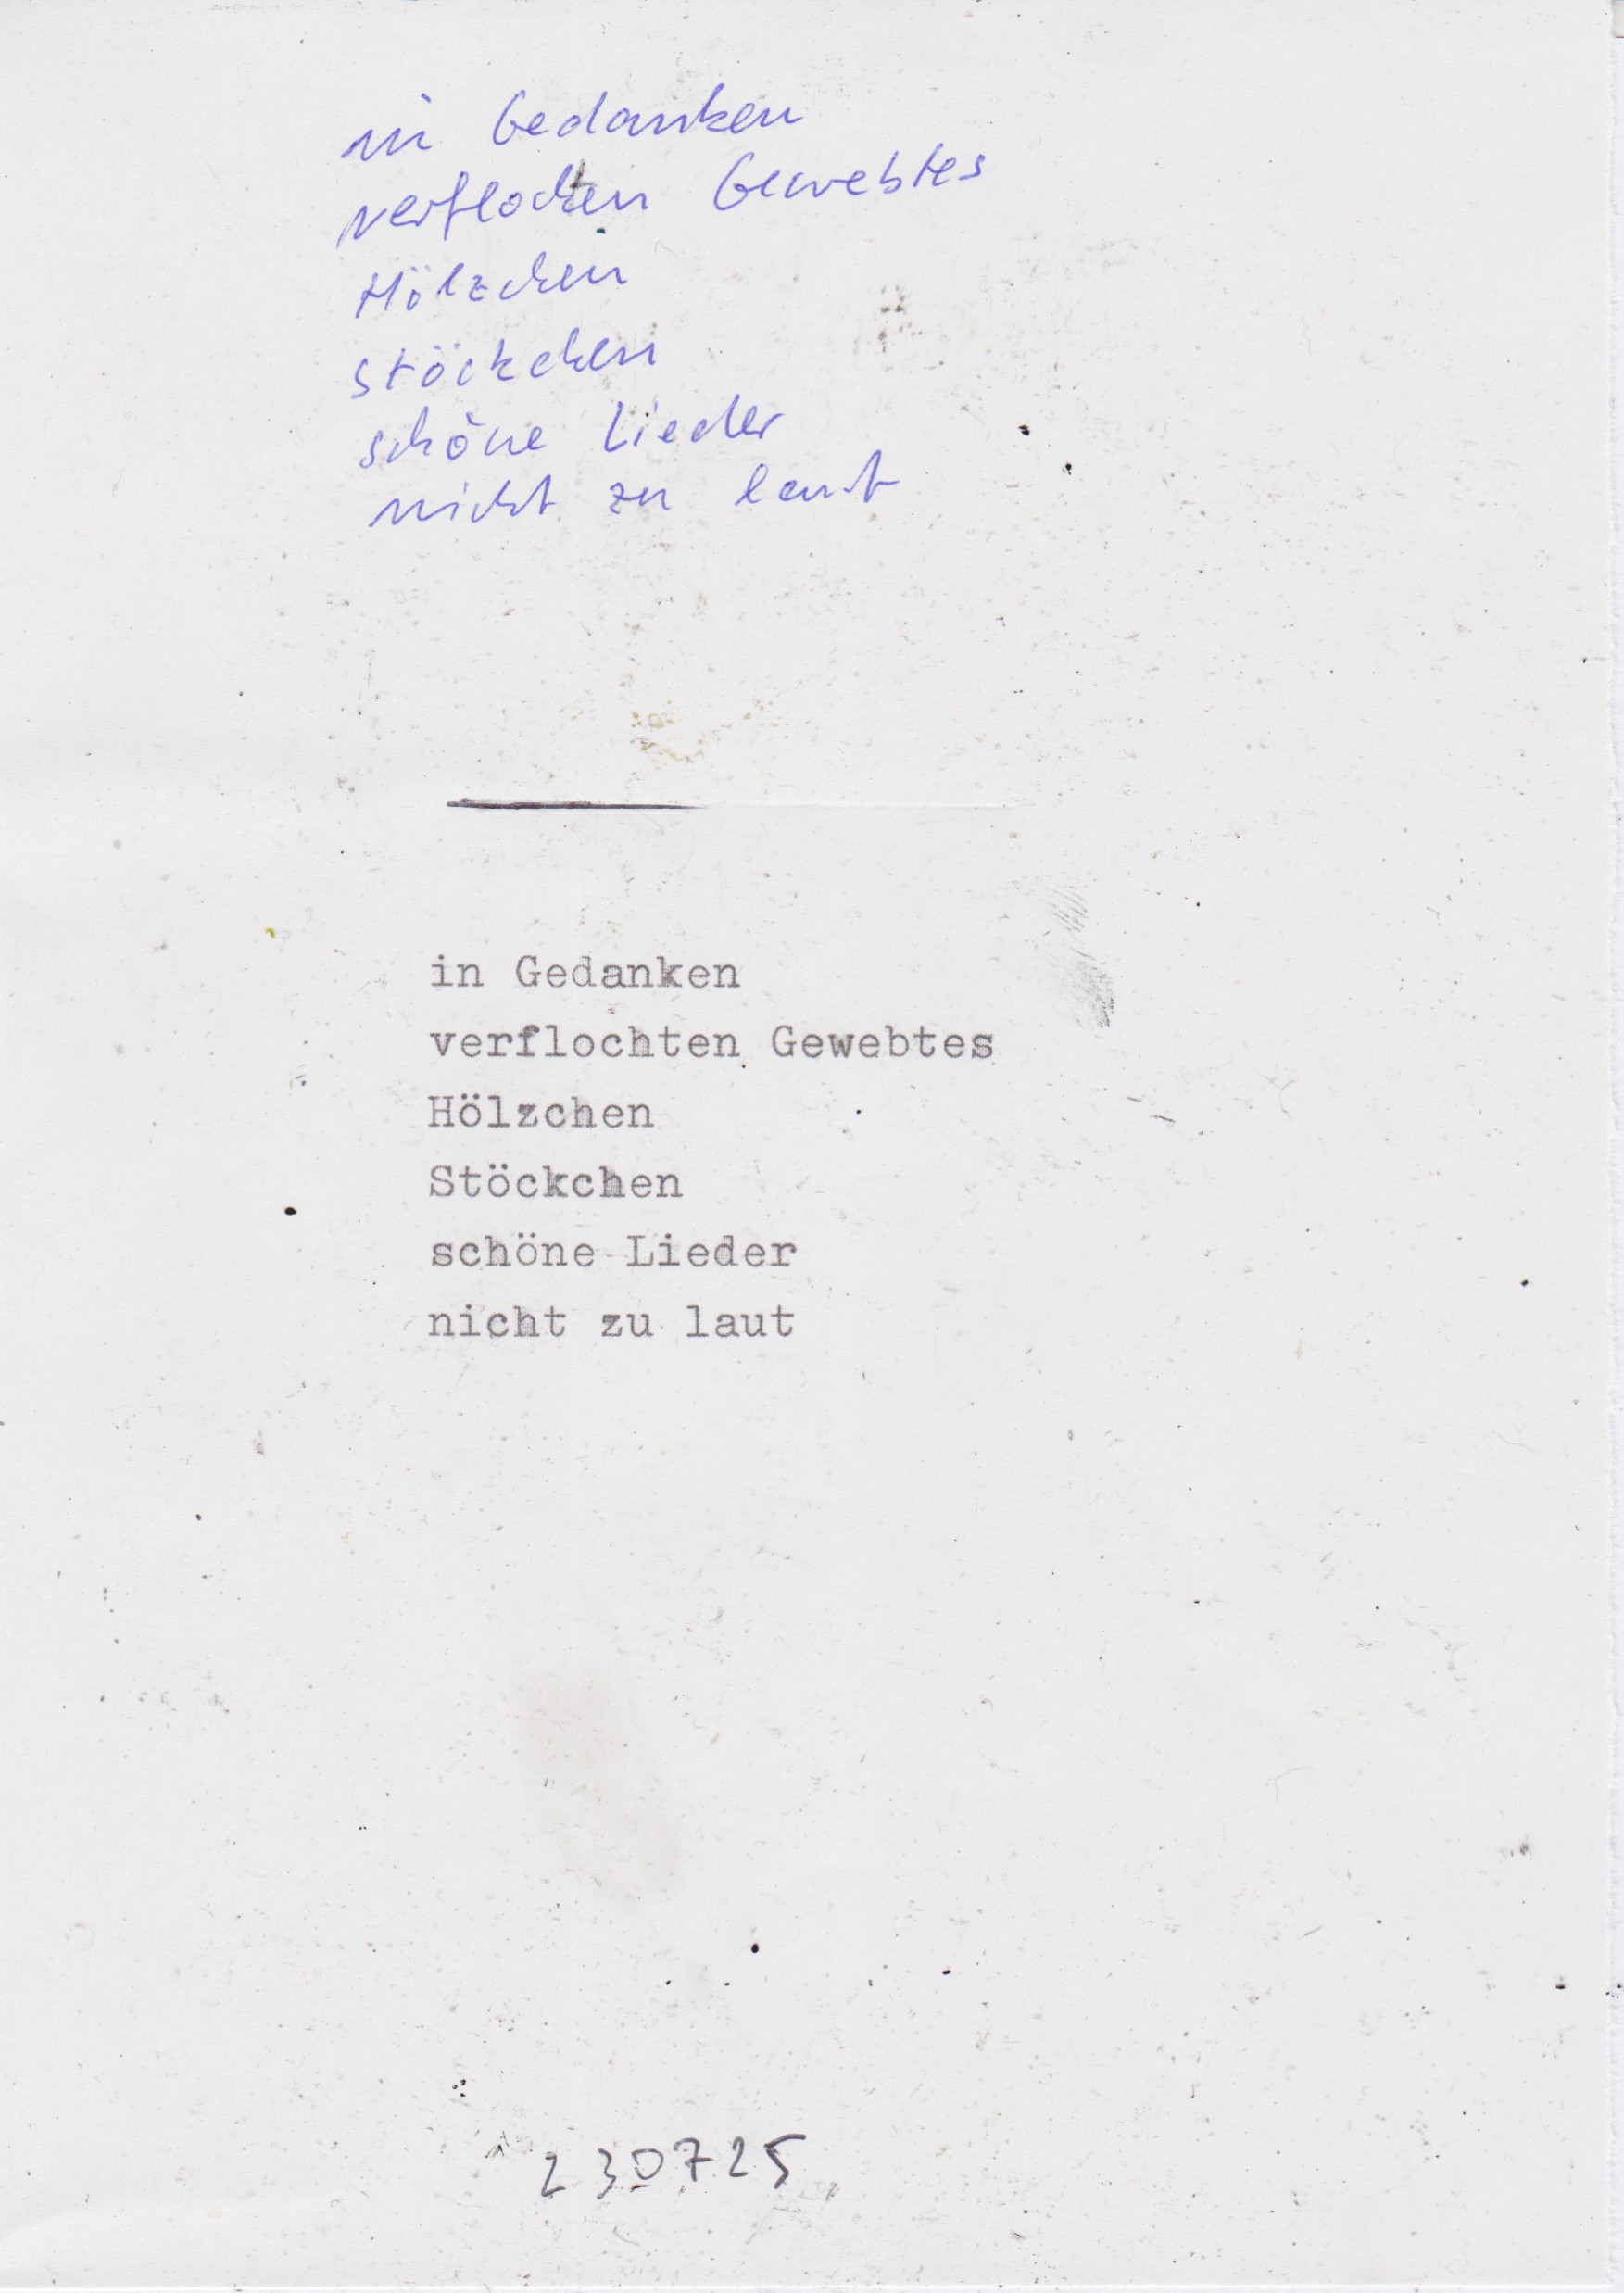 in Gedanken
verflochten Gewebtes
Hölzchen
Stöckchen
schöne Lieder
nicht zu laut
in Gedanken
verflochten Gewebtes
Hölzchen
Stöckchen
schöne Lieder
nicht zu laut
230725